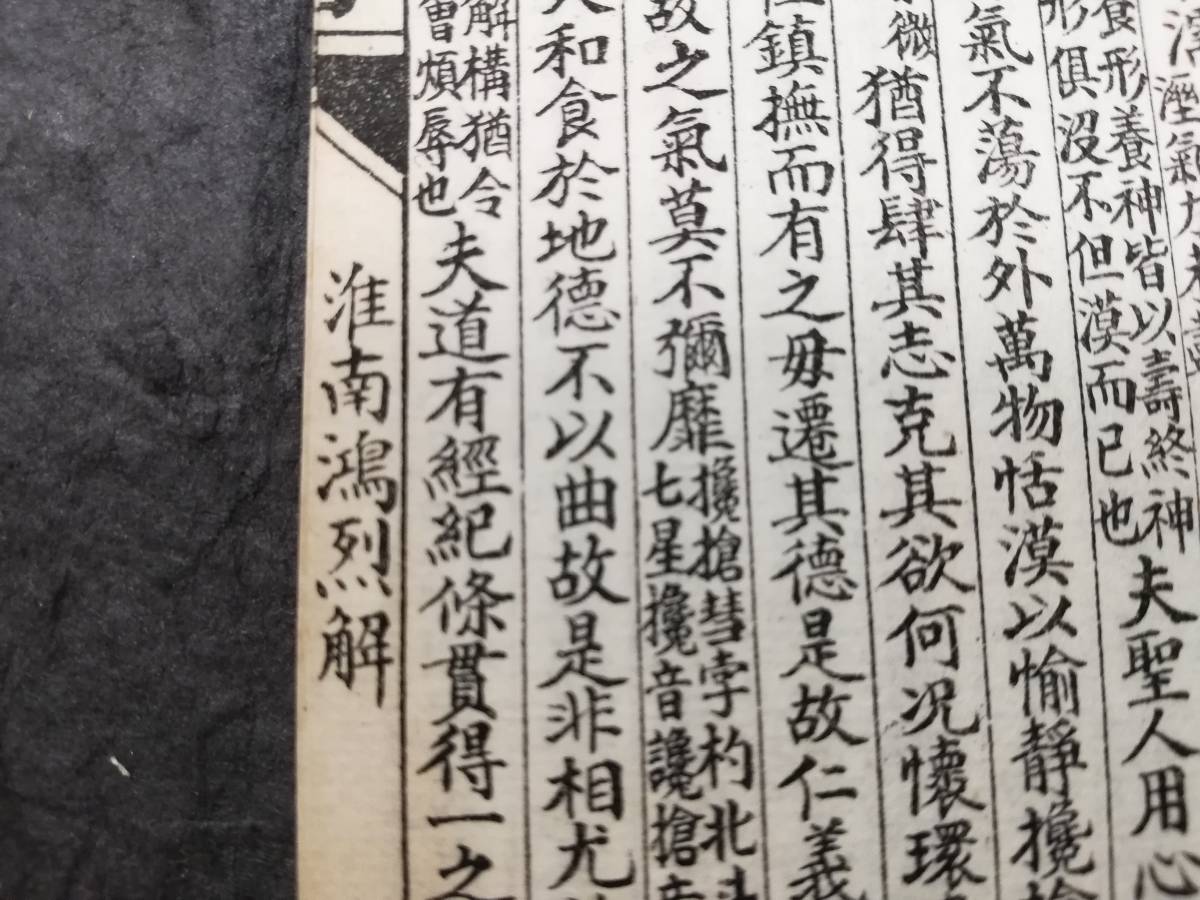 溼氣
食形養神皆以壽終神
形俱沒不但漠而已也
夫聖人用心
氣不蕩於外萬物恬漠以愉靜攙
微
猶得肆其志克其欲何况懷環
鎮撫而有之毋遷其德是故仁義
故之氣莫不彌靡
攙搶彗孛杓北
七星攙音讒搶音
和食於地德不以曲故是非相尤
解構猶令
曾煩辱也
夫道有經紀條貫得一之
淮南鴻烈解